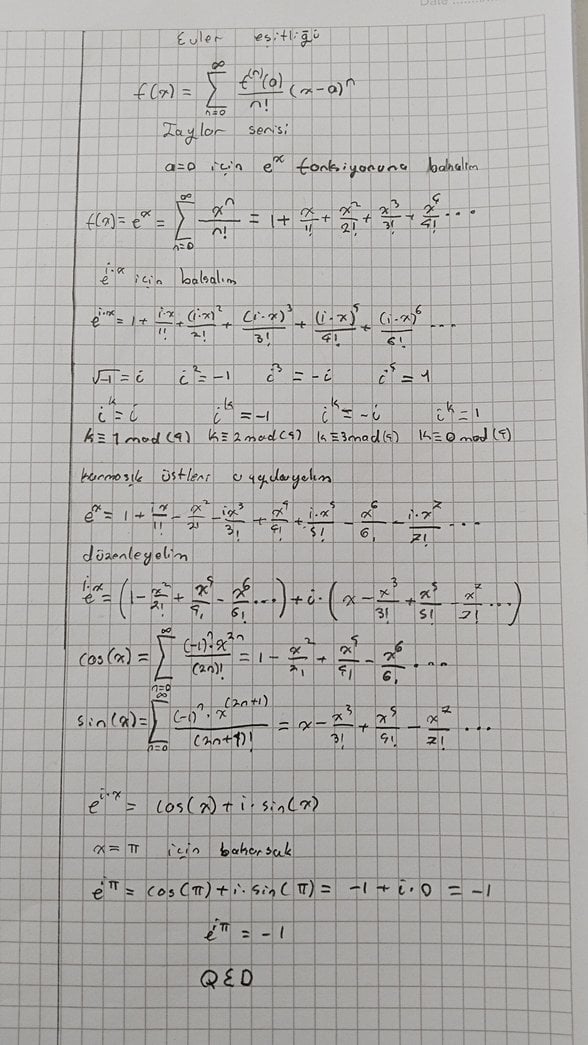 Date
Euler eşitliği
f(x) = ∑_{n=0}^{∞} f⁽ⁿ⁾(a)/n! (x-a)ⁿ
Taylor serisi
a=0 için eˣ fonksiyonuna bakalım
f(x) = eˣ = ∑_{n=0}^{∞} xⁿ/n! = 1 + x/1! + x²/2! + x³/3! + x⁴/4! ...
e^{i·x} için bakalım
e^{i·x} = 1 + i·x/1! + (i·x)²/2! + (i·x)³/3! + (i·x)⁵/4! + (i·x)⁶/6! ...
√-1 = i i² = -1 i³ = -i i⁴ = 1
iᵏ = i iᵏ = -1 iᵏ = -i iᵏ = 1
k ≡ 1 mod(4) k ≡ 2 mod(4) k ≡ 3 mod(4) k ≡ 0 mod(4)
karmaşık üstleri uygulayalım
eˣ = 1 + i·x/1! - x²/2! - ix³/3! + x⁴/4! + i·x⁵/5! - x⁶/6! - i·x⁷/7! ...
düzenleyelim
e^{i·x} = (1 - x²/2! + x⁴/4! - x⁶/6! ...) + i·(x - x³/3! + x⁵/5! - x⁷/7! ...)
cos(x) = ∑_{n=0}^{∞} (-1)ⁿ·x²ⁿ/(2n)! = 1 - x²/2! + x⁴/4! - x⁶/6! ...
sin(x) = ∑_{n=0}^{∞} (-1)ⁿ·x^{(2n+1)}/(2n+1)! = x - x³/3! + x⁵/5! - x⁷/7! ...
e^{i·x} = cos(x) + i·sin(x)
x = π için bakarsak
e^{iπ} = cos(π) + i·sin(π) = -1 + i·0 = -1
e^{iπ} = -1
QED